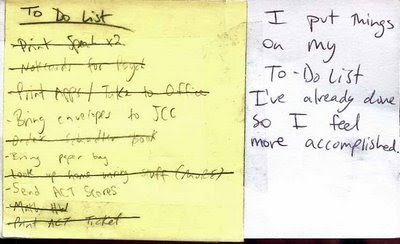 To Do List
- Print x2
- Notecards for
- Print Apps / Take to Office
- Bring envelopes to JCC
- Order book
- Bring paper bag
- Look up stuff (MORE)
- Send ACT Scores
- Math HW
- Print ACT Ticket
I put things
on my
To-Do List
I've already done
so I feel
more accomplished.